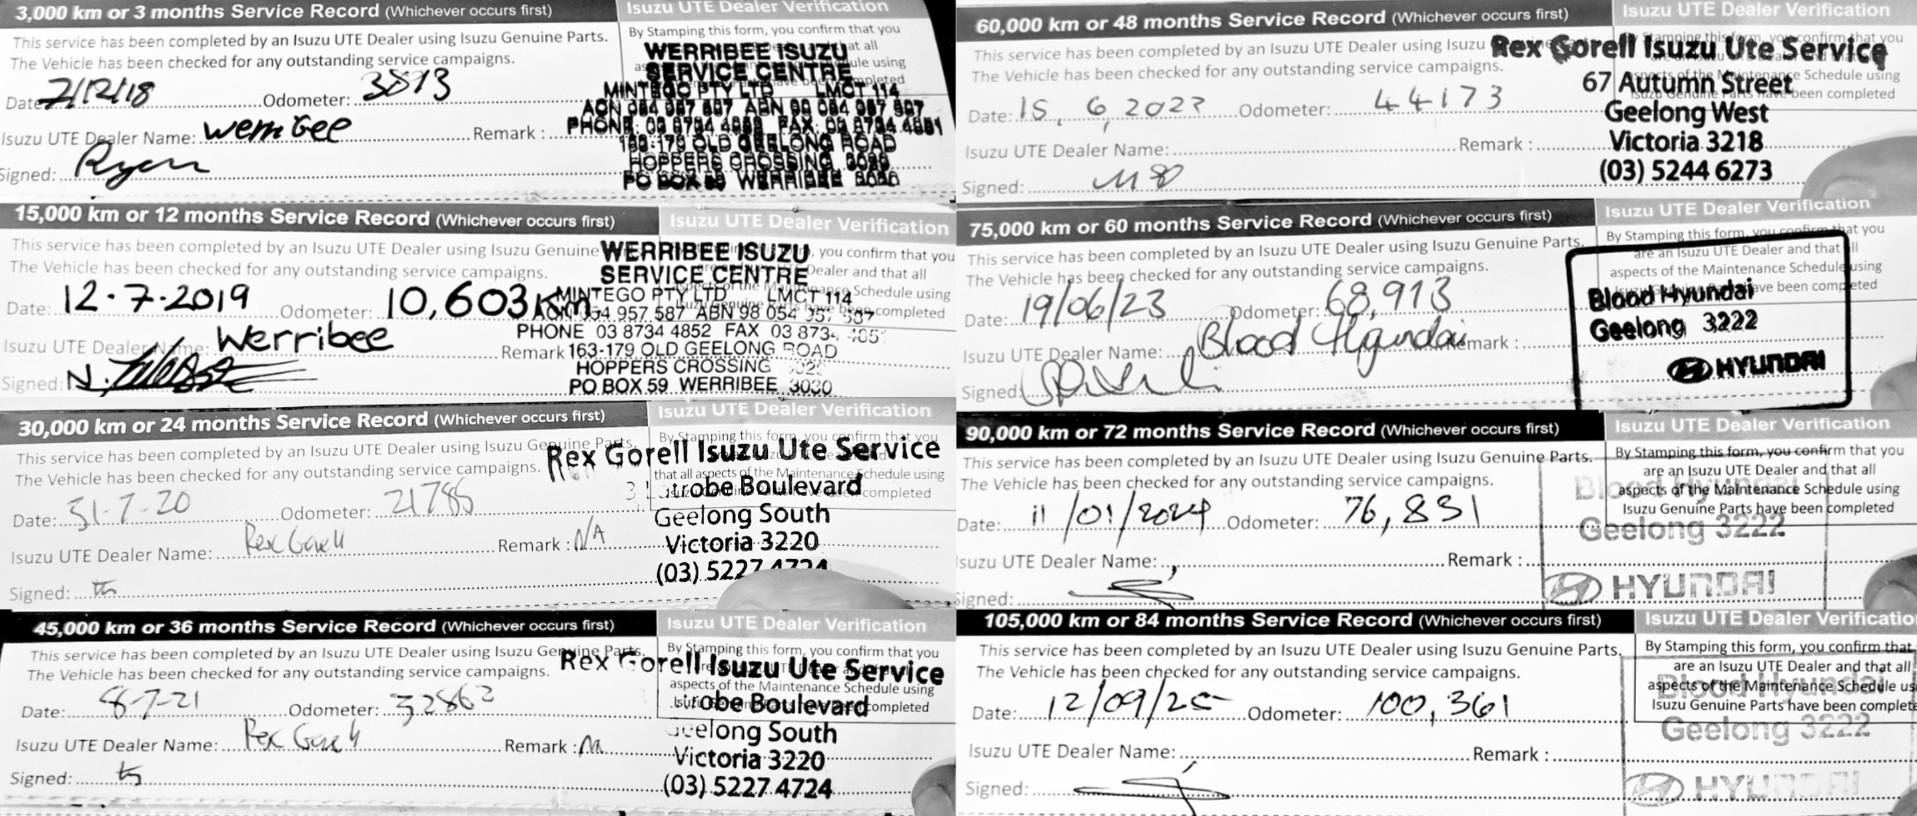 3,000 km or 3 months Service Record (Whichever occurs first)
Isuzu UTE Dealer Verification
This service has been completed by an Isuzu UTE Dealer using Isuzu Genuine Parts.
The Vehicle has been checked for any outstanding service campaigns.
By Stamping this form, you confirm that you
at all
ule using
pleted
WERRIBEE ISUZU
SERVICE CENTRE
MINTEGO PTY LTD LMCT 114
Date: 7/12/18 Odometer: 3813
Isuzu UTE Dealer Name: Werribee Remark :
163-179 OLD GEELONG ROAD
HOPPERS CROSSING
PO BOX 59 WERRIBEE 3030
Signed: Ryan
15,000 km or 12 months Service Record (Whichever occurs first)
Isuzu UTE Dealer Verification
This service has been completed by an Isuzu UTE Dealer using Isuzu Genuine
The Vehicle has been checked for any outstanding service campaigns.
, you confirm that you
Dealer and that all
Schedule using
completed
WERRIBEE ISUZU
SERVICE CENTRE
MINTEGO PTY LTD LMCT 114
ABN 98 054
PHONE 03 8734 4852 FAX 03 873
163-179 OLD GEELONG ROAD
HOPPERS CROSSING
PO BOX 59 WERRIBEE 3030
Date: 12.7.2019 Odometer: 10,603Km
Isuzu UTE Dealer Name: Werribee Remark
Signed: N.
30,000 km or 24 months Service Record (Whichever occurs first)
Isuzu UTE Dealer Verification
This service has been completed by an Isuzu UTE Dealer using Isuzu Genuine Parts.
The Vehicle has been checked for any outstanding service campaigns.
By Stamping this form, you confirm that you
that all aspects of the Maintenance Schedule using
completed
Rex Gorell Isuzu Ute Service
trobe Boulevard
Geelong South
Victoria 3220
(03) 5227 4724
Date: 31-7-20 Odometer: 21785
Isuzu UTE Dealer Name: Rex Gorell Remark : N/A
Signed:
45,000 km or 36 months Service Record (Whichever occurs first)
Isuzu UTE Dealer Verification
This service has been completed by an Isuzu UTE Dealer using Isuzu Genuine Parts.
The Vehicle has been checked for any outstanding service campaigns.
By Stamping this form, you confirm that you
aspects of the Maintenance Schedule using
completed
Rex Gorell Isuzu Ute Service
trobe Boulevard
eelong South
Victoria 3220
(03) 5227 4724
Date: 8-7-21 Odometer: 32862
Isuzu UTE Dealer Name: Rex Gorell Remark :
Signed:
60,000 km or 48 months Service Record (Whichever occurs first)
Isuzu UTE Dealer Verification
This service has been completed by an Isuzu UTE Dealer using Isuzu
The Vehicle has been checked for any outstanding service campaigns.
Stamping this form, you confirm that you
aspects of the Maintenance Schedule using
have been completed
Rex Gorell Isuzu Ute Service
67 Autumn Street
Geelong West
Victoria 3218
(03) 5244 6273
Date: 15, 6, 2022 Odometer: 44173
Isuzu UTE Dealer Name: Remark :
Signed:
75,000 km or 60 months Service Record (Whichever occurs first)
Isuzu UTE Dealer Verification
This service has been completed by an Isuzu UTE Dealer using Isuzu Genuine Parts.
The Vehicle has been checked for any outstanding service campaigns.
By Stamping this form, you confirm that you
are an Isuzu UTE Dealer and that all
aspects of the Maintenance Schedule using
have been completed
Blood Hyundai
Geelong 3222
HYUNDAI
Date: 19/06/23 Odometer: 68,913
Isuzu UTE Dealer Name: Blood Hyundai Remark :
Signed:
90,000 km or 72 months Service Record (Whichever occurs first)
Isuzu UTE Dealer Verification
This service has been completed by an Isuzu UTE Dealer using Isuzu Genuine Parts.
The Vehicle has been checked for any outstanding service campaigns.
By Stamping this form, you confirm that you
are an Isuzu UTE Dealer and that all
aspects of the Maintenance Schedule using
Isuzu Genuine Parts have been completed
Blood Hyundai
Geelong 3222
HYUNDAI
Date: 11/01/2024 Odometer: 76,831
Isuzu UTE Dealer Name: Remark :
Signed:
105,000 km or 84 months Service Record (Whichever occurs first)
Isuzu UTE Dealer Verification
This service has been completed by an Isuzu UTE Dealer using Isuzu Genuine Parts.
The Vehicle has been checked for any outstanding service campaigns.
By Stamping this form, you confirm that
are an Isuzu UTE Dealer and that all
aspects of the Maintenance Schedule us
Isuzu Genuine Parts have been complete
Blood Hyundai
Geelong 3222
HYUNDAI
Date: 12/09/25 Odometer: 100,361
Isuzu UTE Dealer Name: Remark :
Signed: